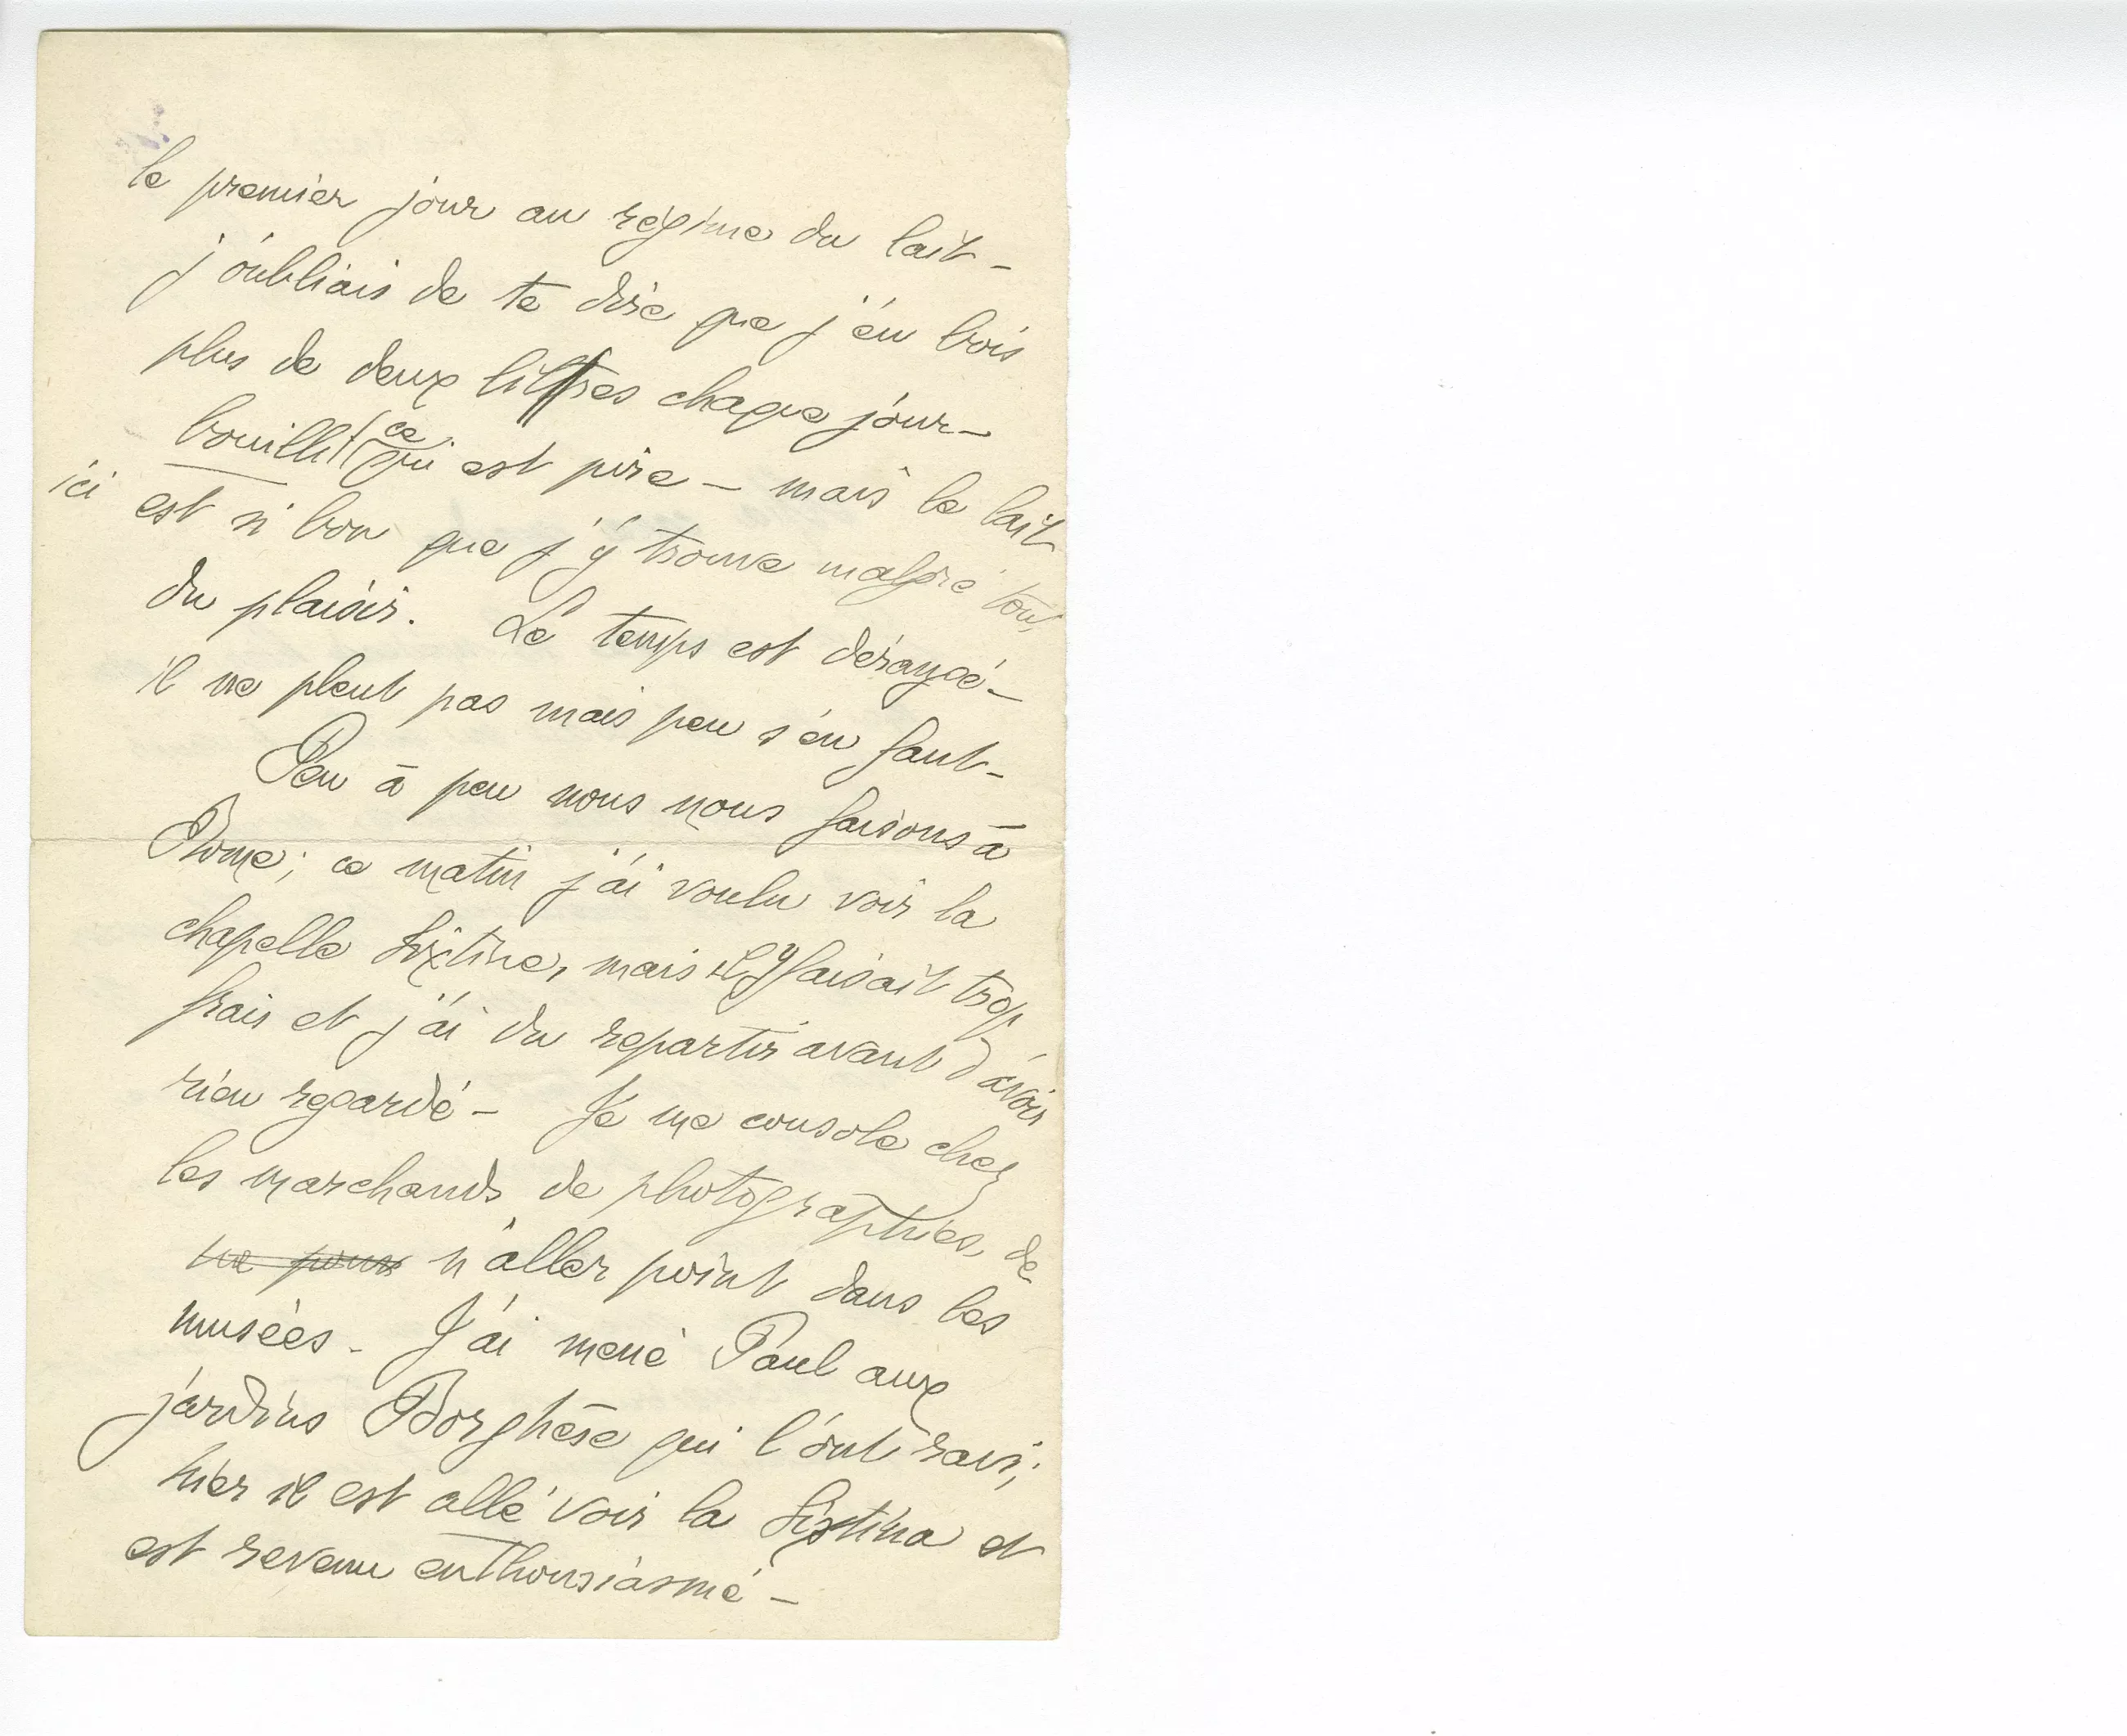 le premier jour au régime du lait –
j'oubliais de te dire que j'en bois
plus de deux litres chaque jour –
bouilli! (ce qui est pire – mais le lait
ici est si bon que j'y trouve malgré tout,
du plaisir. Le temps est dérangé –
il ne pleut pas mais peu s'en faut –
Peu à peu nous nous faisons à
Rome ; ce matin j'ai voulu voir la
chapelle Sixtine, mais il y faisait trop
frais et j'ai du repartir avant d'avoir
rien regardé – Je me console chez
les marchands de photographies, de
ne pouv n'aller point dans les
musées – J'ai mené Paul aux
jardins Borghèse qui l'ont ravi ;
hier il est allé voir la Sixtina et
est revenu enthousiasmé –